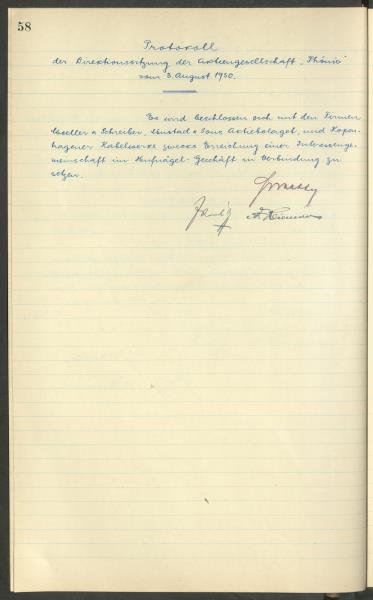 58
Protokoll
der Direktionssitzung der Aktiengesellschaft „Phönix"
vom 3. August 1930.
Es wird beschlossen sich mit den Firmen
Moeller & Schreiber, Mustad & Sons Actiebolaget, und Kopen-
hagener Kabelwerke zwecks Erreichung einer Interessenge-
meinschaft im Hufnägel-Geschäft in Verbindung zu
setzen.